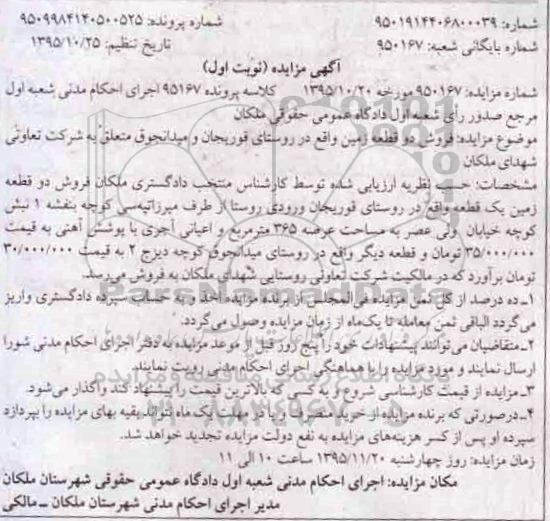 شماره: ۹۵۰۱۹۱۴۴۰۶۸۰۰۰۳۹ شماره پرونده: ۹۵۰۹۹۸۴۱۴۰۵۰۰۵۲۵
شماره بایگانی شعبه: ۹۵۰۱۶۷ تاریخ تنظیم: ۱۳۹۵/۱۰/۲۵
آگهی مزایده (نوبت اول)
شماره مزایده: ۹۵۰۱۶۷ مورخه ۱۳۹۵/۱۰/۲۰ کلاسه پرونده ۹۵۱۶۷ اجرای احکام مدنی شعبه اول
مرجع صدور رای شعبه اول دادگاه عمومی حقوقی ملکان
موضوع مزایده: فروش دو قطعه زمین واقع در روستای قوریجان و میدانجوق متعلق به شرکت تعاونی
شهدای ملکان
مشخصات: حسب نظریه ارزیابی شده توسط کارشناس منتخب دادگستری ملکان فروش دو قطعه
زمین یک قطعه واقع در روستای قوریجان ورودی روستا از طرف میرزاتپه‌سی کوچه بنفشه ۱ نبش
کوچه خیابان ولی عصر به مساحت عرصه ۳۶۵ مترمربع و اعیانی آجری با پوشش آهنی به قیمت
۳۵/۰۰۰/۰۰۰ تومان و قطعه دیگر واقع در روستای میدانجوق کوچه دیزج ۲ به قیمت ۳۰/۰۰۰/۰۰۰
تومان برآورد که در مالکیت شرکت تعاونی روستایی شهدای ملکان به فروش می‌رسد.
۱_ده درصد از کل ثمن مزایده فی‌المجلس از برنده مزایده اخذ و به حساب سپرده دادگستری واریز
می‌گردد الباقی ثمن معامله تا یک‌ماه از زمان مزایده وصول می‌گردد.
۲_متقاضیان می‌توانند پیشنهادات خود را پنج روز قبل از موعد مزایده به دفتر اجرای احکام مدنی شورا
ارسال نمایند و مورد مزایده را با هماهنگی اجرای احکام مدنی رویت نمایند.
۳_مزایده از قیمت کارشناسی شروع و به کسی که بالاترین قیمت را پیشنهاد کند واگذار می‌شود.
۴_درصورتی که برنده مزایده از خرید منصرف و یا در مهلت یک ماه نتواند بقیه بهای مزایده را بپردازد
سپرده او پس از کسر هزینه‌های مزایده به نفع دولت مزایده تجدید خواهد شد.
زمان مزایده: روز چهارشنبه ۱۳۹۵/۱۱/۲۰ ساعت ۱۰ الی ۱۱
مکان مزایده: اجرای احکام مدنی شعبه اول دادگاه عمومی حقوقی شهرستان ملکان
مدیر اجرای احکام مدنی شهرستان ملکان _ مالکی
ParsNamadData